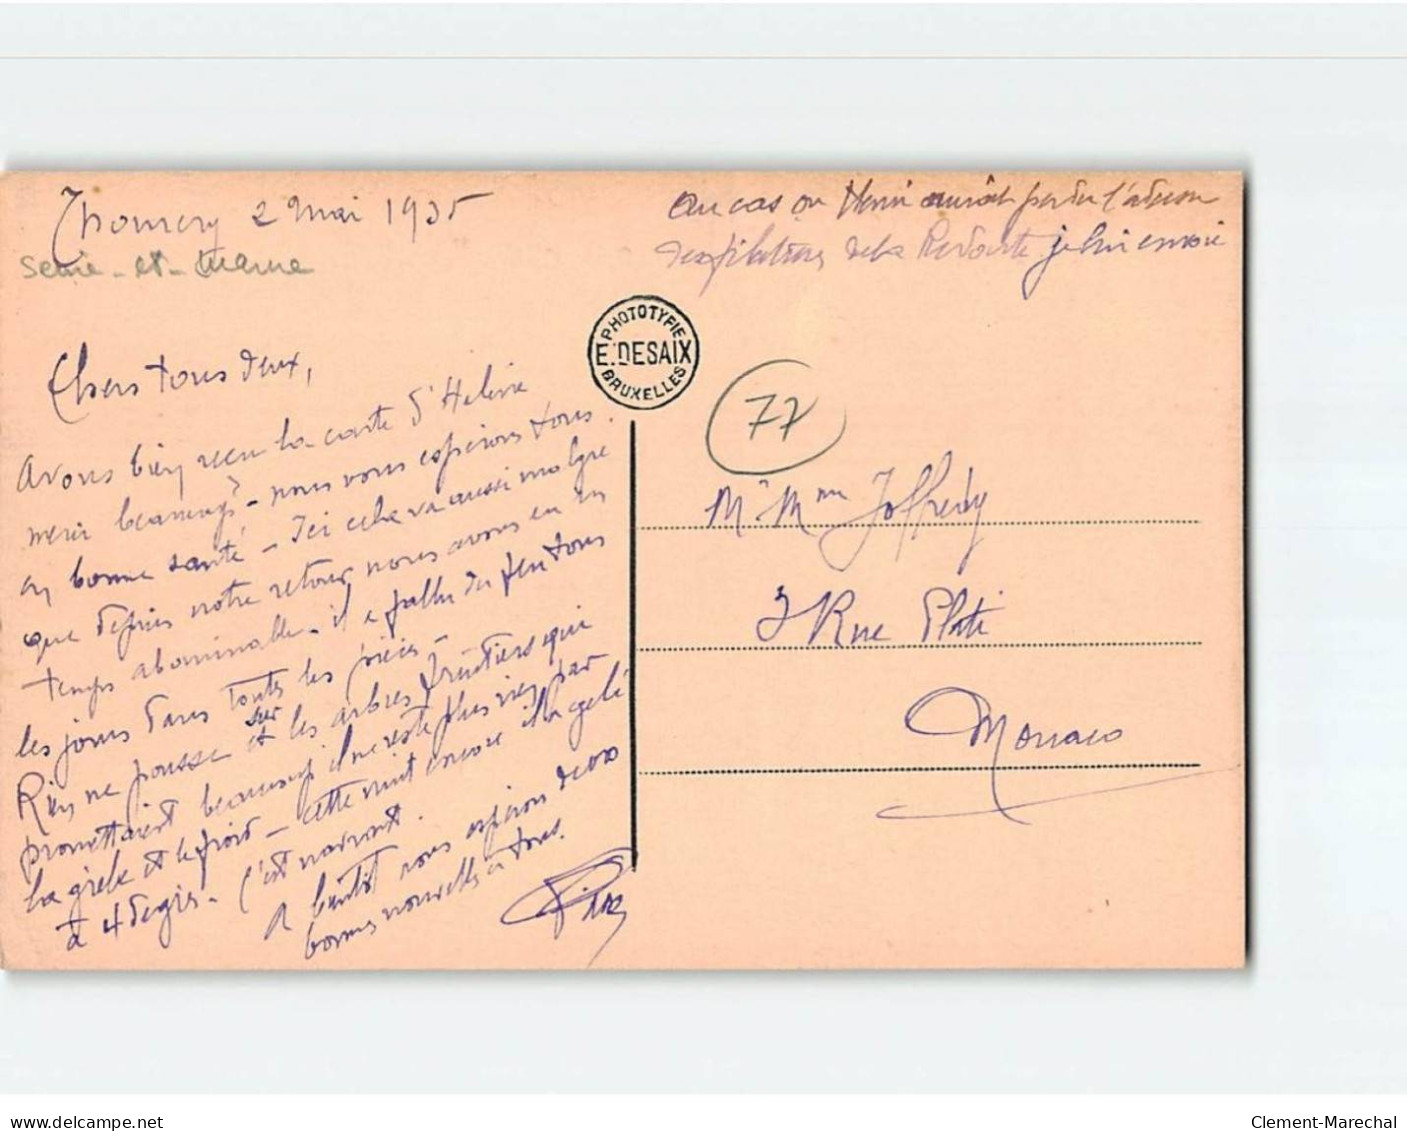 Thomery 2 Mai 1935
Seine-et-Marne
au cas où Henri aurait perdu l'adresse
de la Redoute je lui envoie
PHOTOTYPIE
E. DESAIX
BRUXELLES
Chers tous deux,
77
avons bien reçu la carte d'Hélène
merci beaucoup - nous vous espérons tous
en bonne santé - Ici cela va aussi malgré
que depuis notre retour nous avons eu un
temps abominable - il a fallu du feu tous
les jours dans toutes les pièces -
Rien ne pousse et sur les arbres fruitiers qui
promettaient beaucoup il ne reste plus rien par
la grêle et le froid - cette nuit encore il a gelé
à 4 degrés - C'est navrant.
A bientôt nous espérons de vos
bonnes nouvelles à tous.
Mr Mme Joffredy
3 Rue Plati
Monaco
delcampe.net
Clement-Marechal